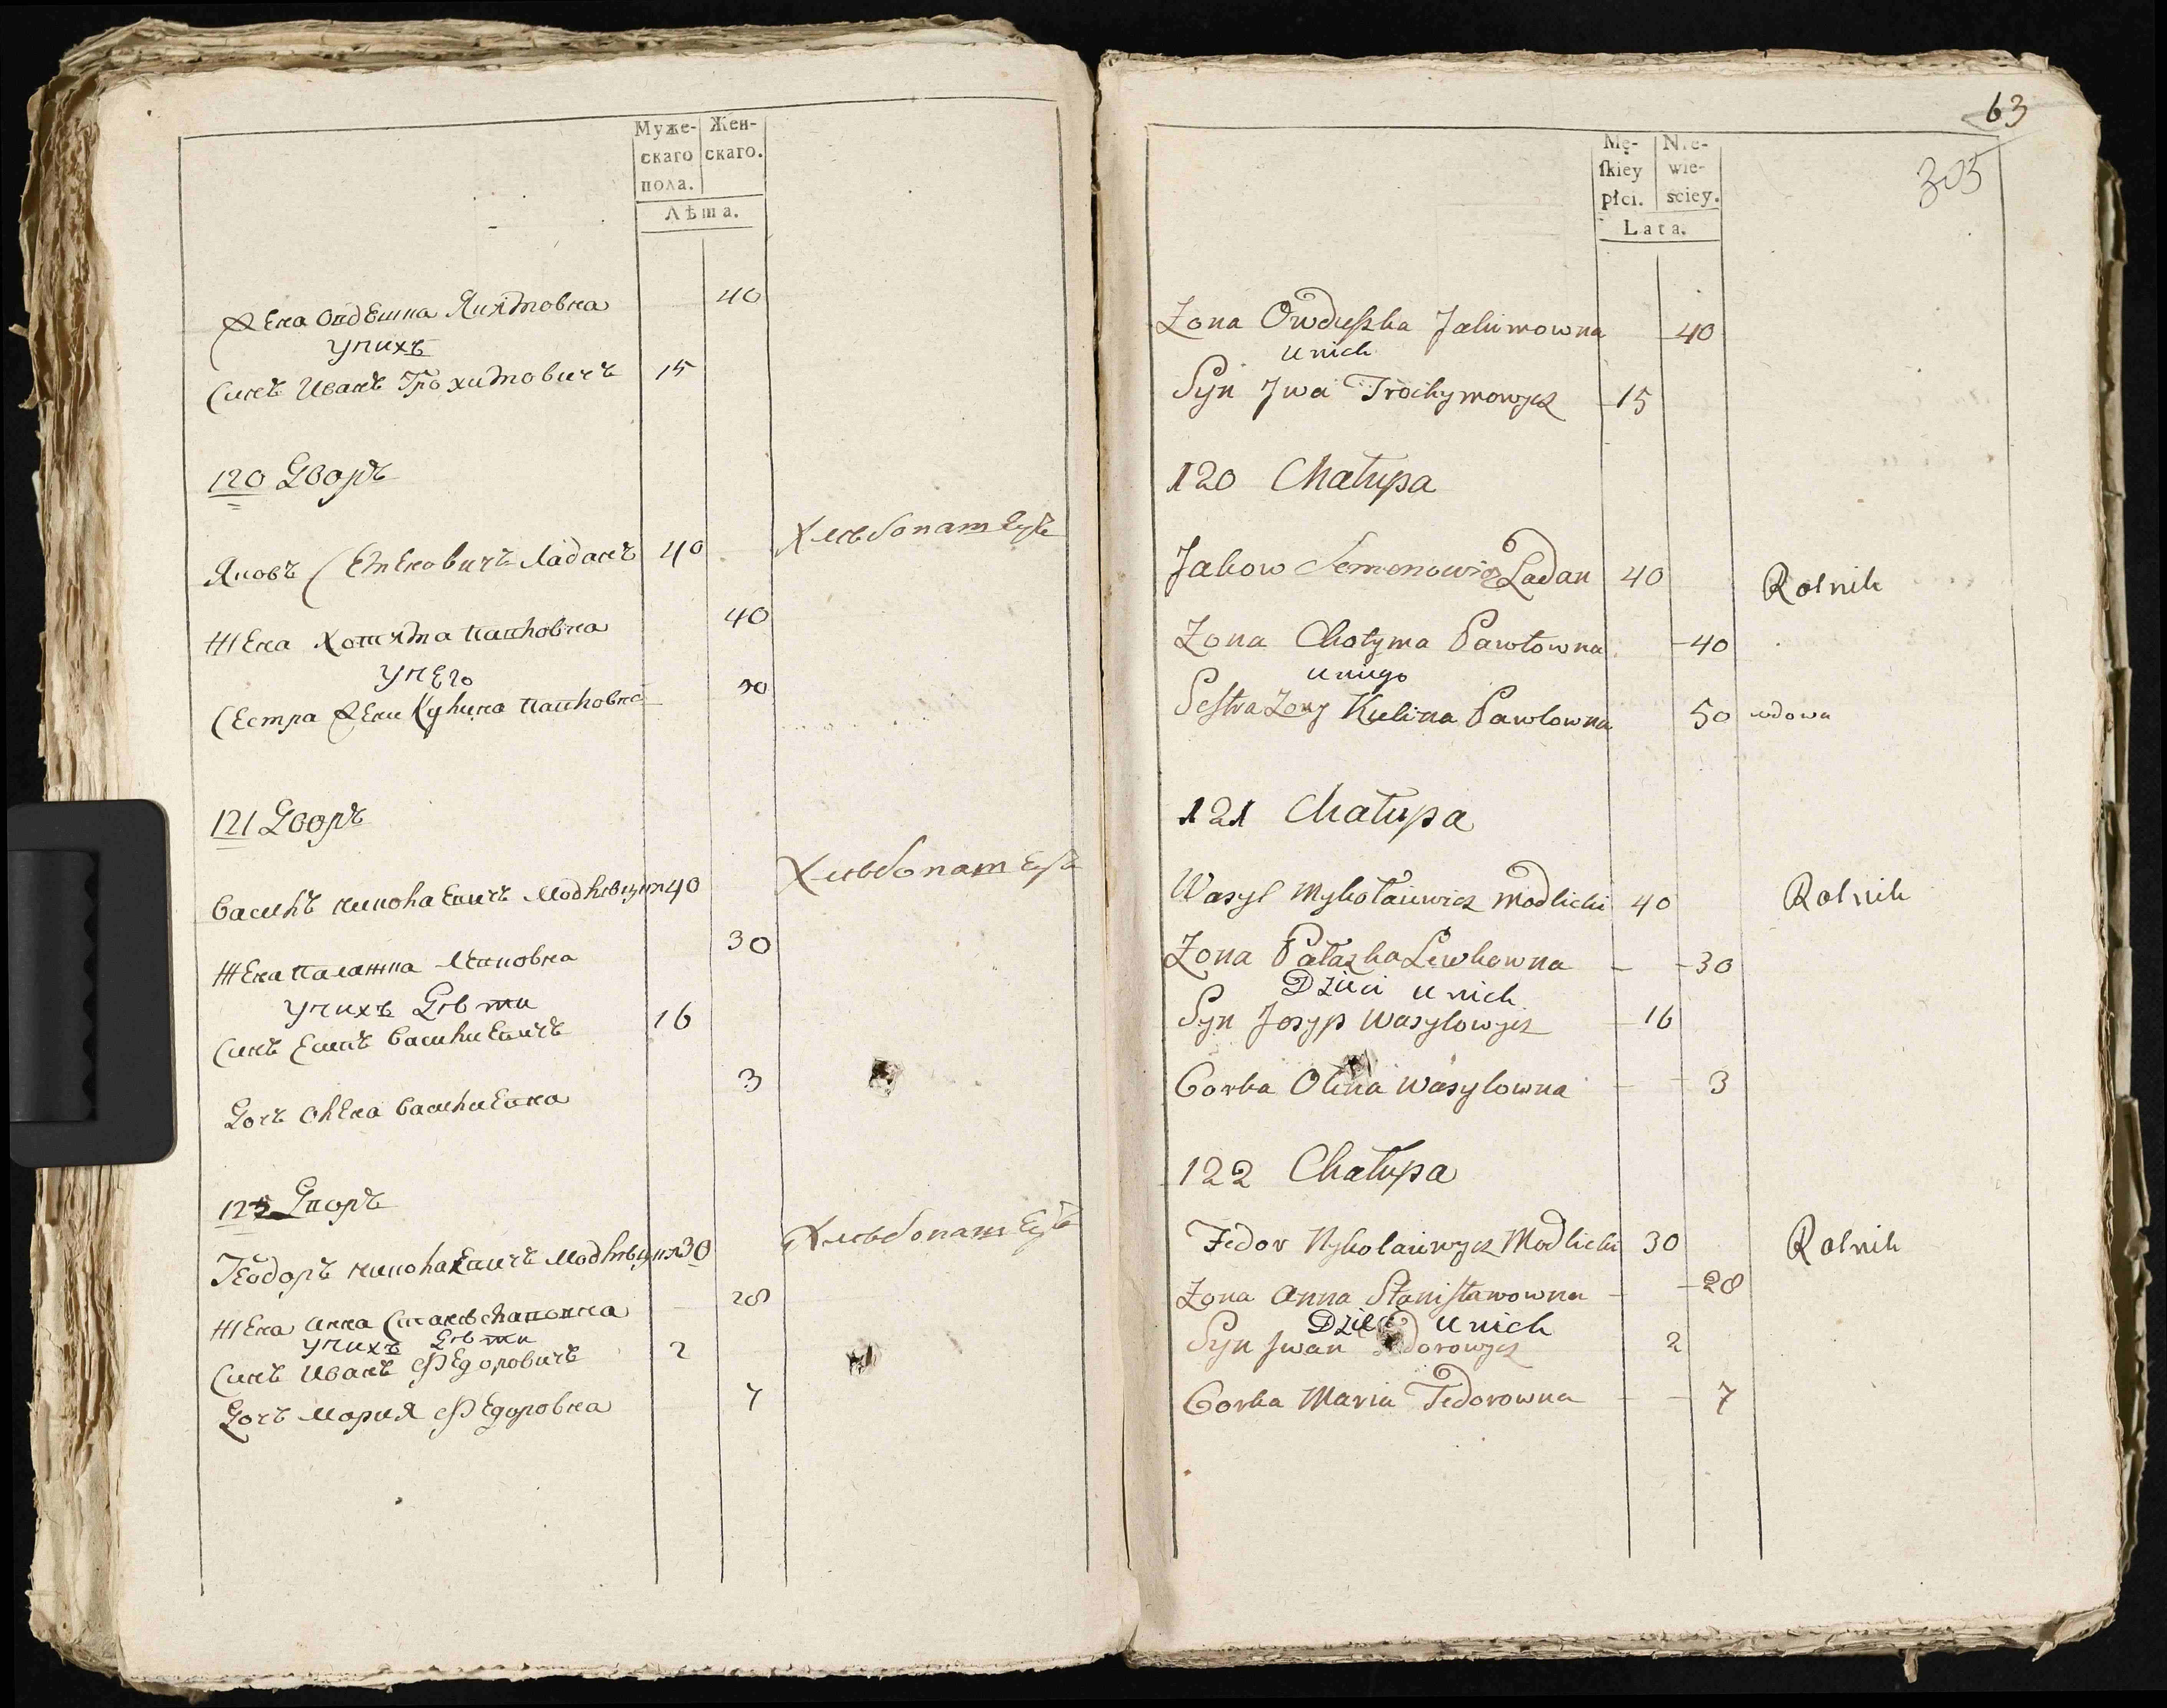 Муже- Жен-
скаго скаго.
пола.
Лѣта.
Жена Овдешка Якимовна 40
У нихъ
Синъ Иванъ Трохимовичъ 15
120 Дворъ
Яковъ Семеновичъ Ладанъ 40 Хлѣбопашецъ
Жена Хотяма Павловна 40
У него
Сестра Жени Кулина Павловна 50
121 Дворъ
Василъ Миколаевичъ Модлѣцки 40 Хлѣбопашецъ
Жена Палажка Левковна 30
У нихъ Дѣти
Синъ Есипъ Василиевичъ 16
Дочъ Олена Василиевна 3
122 Дворъ
Теодоръ Миколаевичъ Модлѣцки 30 Хлѣбопашецъ
Жена Анна Станѣславовна 28
У нихъ Дѣти
Синъ Иванъ Федоровичъ 2
Дочъ Мария Федоровна 7
63
305
Mę- Nie-
ſkiey wie-
płci. ściey.
Lata.
Zona Owdyſzka Jakimowna 40
u nich
Syn Jwa Trochymowycz 15
120 Chałupa
Jakow Semenowicz Ladan 40 Rolnik
Zona Chotyma Pawłowna 40
u niego
Sestra Zony Kulina Pawlowna 50 wdowa
121 Chałupa
Wasyl Mykołaiewicz Modlicki 40 Rolnik
Zona Pałazka Lewkowna 30
Dzieci u nich
Syn Josyp Wasylowycz 16
Corka Olena Wasylowna 3
122 Chałupa
Fedor Mykolaiewycz Modlicki 30 Rolnik
Zona Anna Stanisławowna 28
Dzieci u nich
Syn Jwan Fedorowycz 2
Corka Maria Fedorowna 7